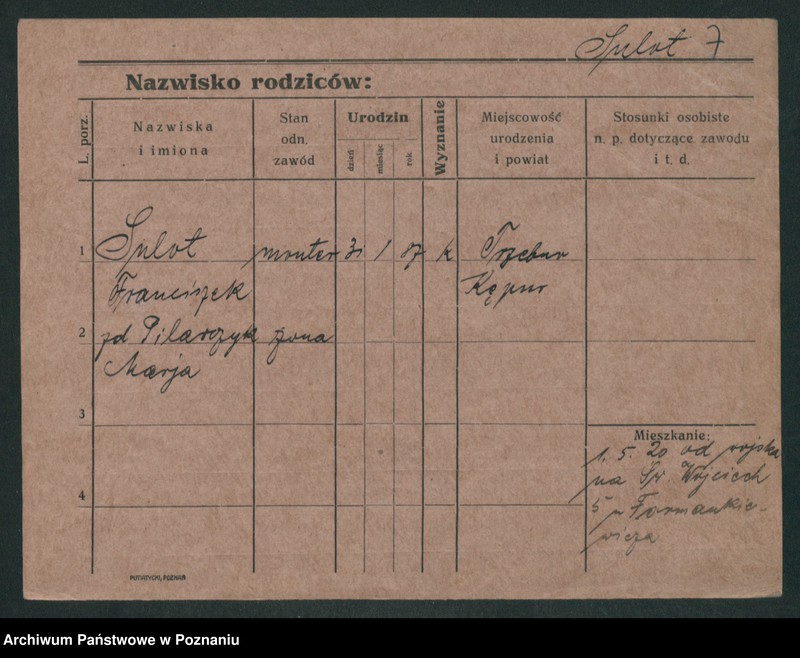 Spłot F
Nazwisko rodziców:
L. porz.
Nazwiska
i imiona
Stan
odn.
zawód
Urodzin
dzień
miesiąc
rok
Wyznanie
Miejscowość
urodzenia
i powiat
Stosunki osobiste
n. p. dotyczące zawodu
i t. d.
1
Spłot monter 31 1 87 k
Franciszek Kępno
2
zd Pilarczyk żona
Marja
3
Mieszkanie:
1. 5. 20 od wojska
na Św. Wojciech
4
5 u Formankie-
wicza
PUTIATYCKI, POZNAŃ
Archiwum Państwowe w Poznaniu